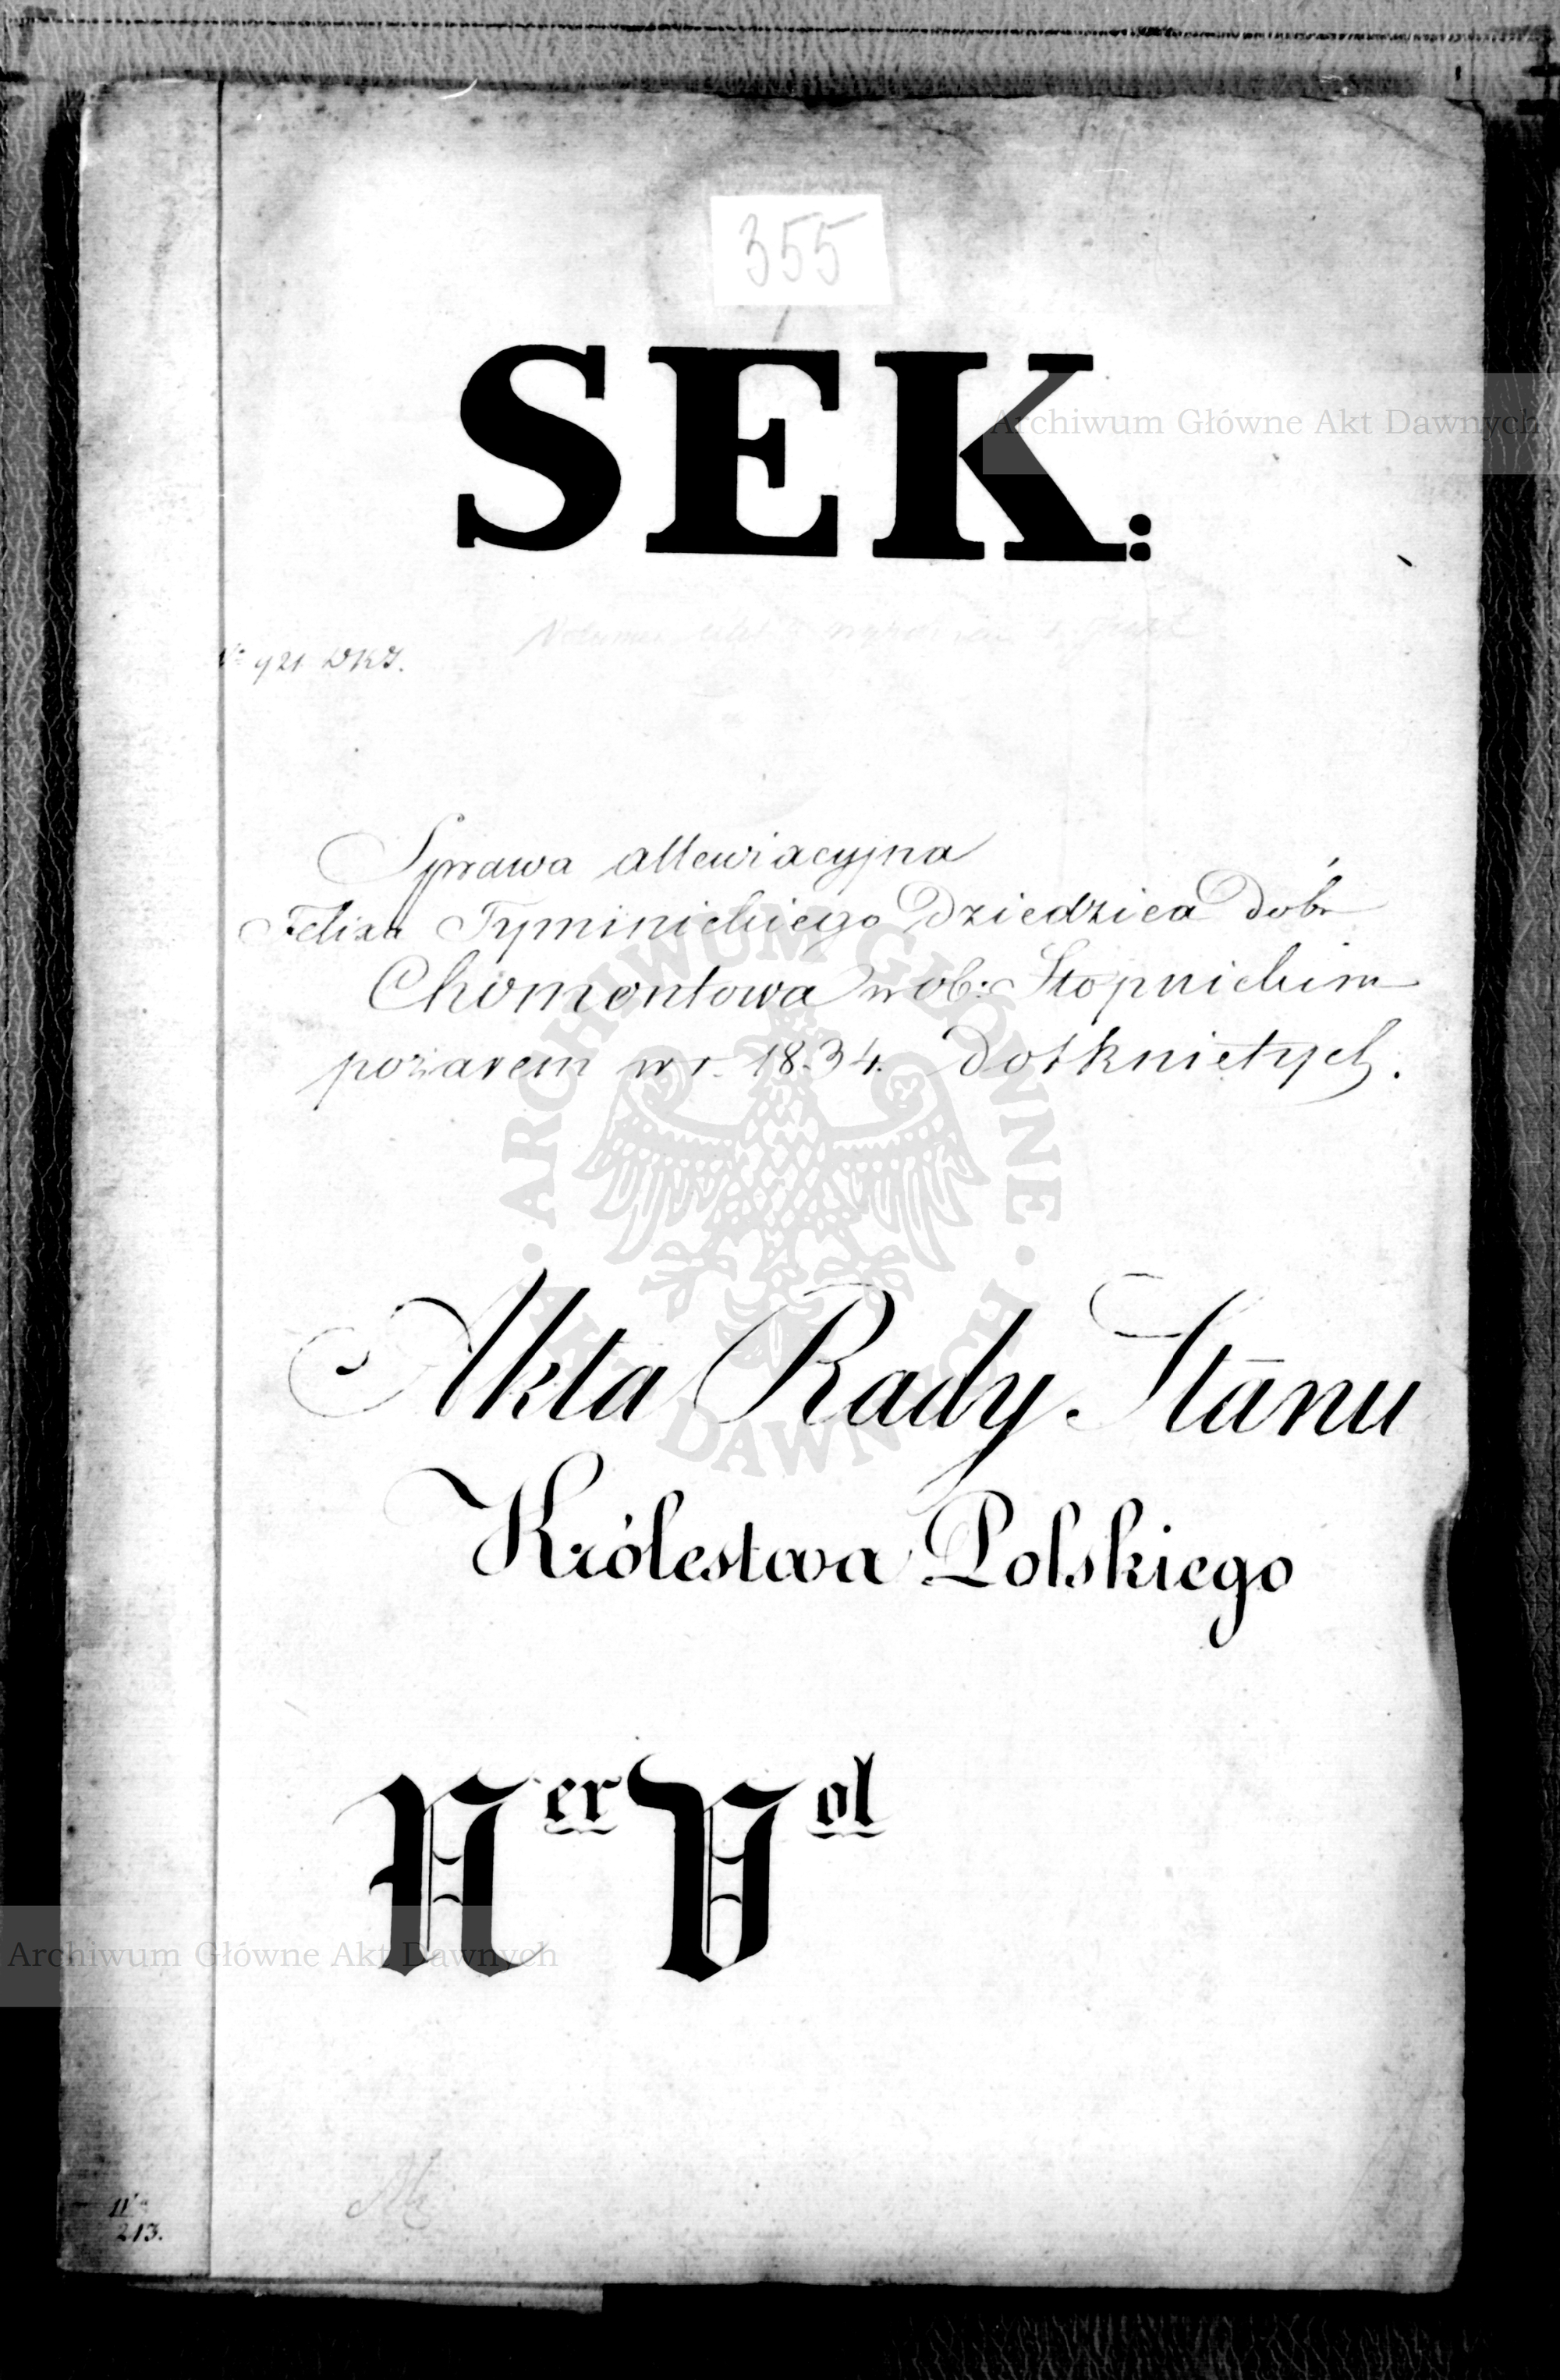 355
SEK:
Archiwum Główne Akt Dawnych
Nº 921
Sprawa allewiacyjna
Felixa Tyminickiego Dziedzica Dóbr
Chomentowa w ob: Stopnickim
pożarem w r. 1834. dotkniętych.
ARCHIWUM GŁÓWNE AKT DAWNYCH
Akta Rady Stanu
Królestwa Polskiego
Ner Vol
Archiwum Główne Akt Dawnych
213.